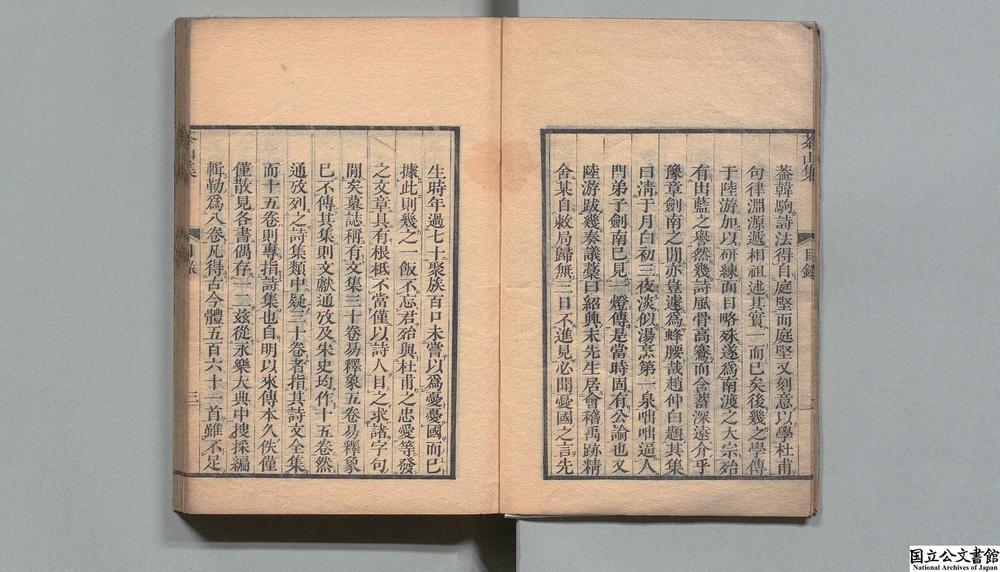 茶山集
目錄
二
蓋韓駒詩法得自庭堅而庭堅又刻意以學杜甫
句律淵源遞相祖述其實一而已矣後幾之學傳
于陸游加以研練面目略殊遂爲南渡之大宗殆
有出藍之譽然幾詩風骨高騫而含蓄深遠介乎
豫章劍南之間亦豈遽爲蜂腰哉趙仲白題其集
曰淸于月白初三夜淡似湯烹第一泉咄咄逼人
門弟子劍南已見一燈傳是當時固有公論也又
陸游跋幾奏議藁曰紹興末先生居會稽禹跡精
舍某自敕局歸無三日不進見必聞憂國之言先
生時年過七十聚族百口未嘗以爲憂憂國而已
據此則幾之一飯不忘君殆與杜甫之忠愛等發
之文章具有根柢不當僅以詩人目之求諸字句
閒矣墓誌稱有文集三十卷易釋象五卷易釋象
已不傳其集則文獻通攷及宋史均作十五卷然
通攷列之詩集類中疑三十卷者指其詩文全集
而十五卷則專指詩集也自明以來傳本久佚僅
僅散見各書偶存一二茲從永樂大典中搜採編
輯勒爲八卷凡得古今體五百六十一首雖不足
茶山集
目錄
三
国立公文書館
National Archives of Japan